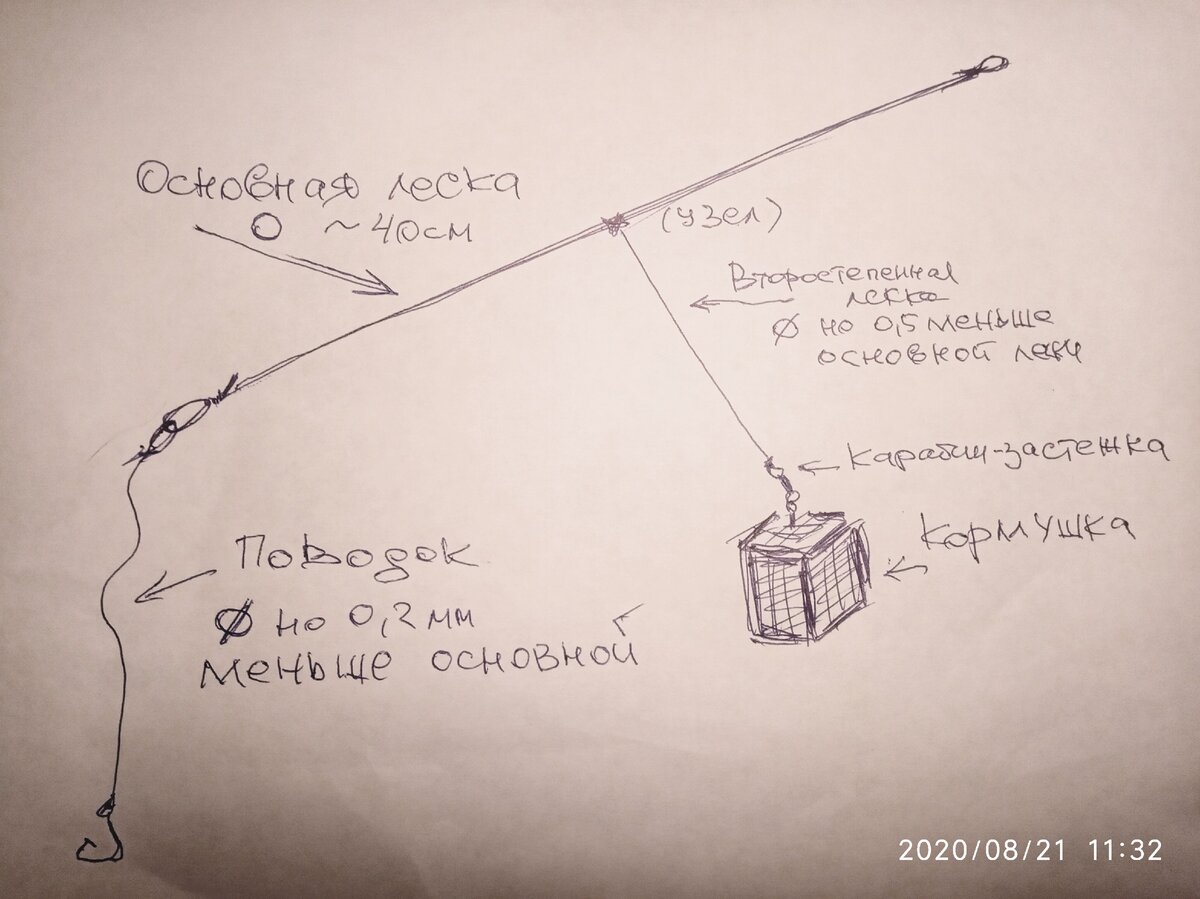 Основная леска
O ~40см
(узел)
Второстепенная
леска
Ø но 0,5 меньше
основной
Карабин-застежка
Кормушка
Поводок
Ø но 0,2 мм
меньше основной
2020/08/21 11:32